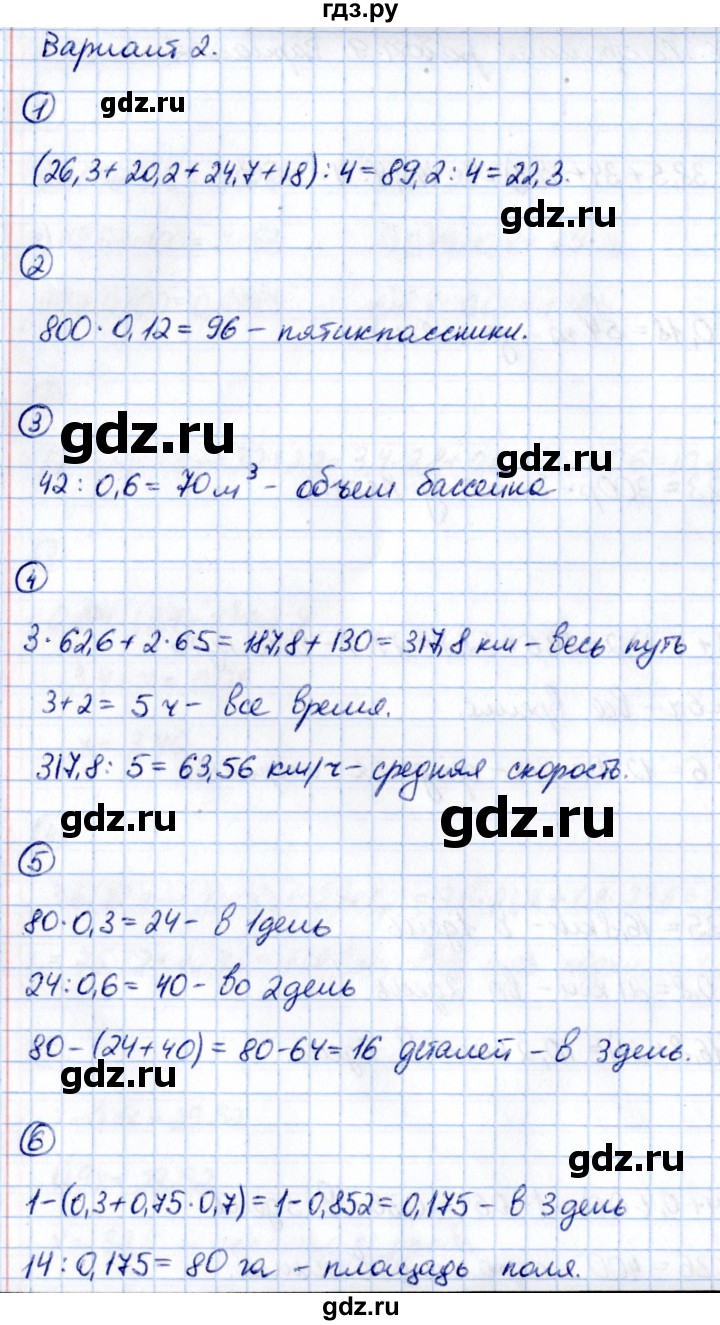 гдз.ру
Вариант 2.
① gdz.ru
(26,3+20,2+24,7+18):4=89,2:4=22,3.
gdz.ru
②
800·0,12=96 – пятиклассники.
③ gdz.ru
gdz.ru
42:0,6=70м³ – объем бассейна
④
3·62,6+2·65=187,8+130=317,8 км – весь путь
3+2=5 ч – все время.
317,8:5=63,56 км/ч – средняя скорость.
gdz.ru gdz.ru
⑤
80·0,3=24 – в 1день
24:0,6=40 – во 2день
80–(24+40)=80–64=16 деталей – в 3день.
gdz.ru
⑥
gdz.ru
1–(0,3+0,75·0,7)=1–0,852=0,175 – в 3день
14:0,175=80 га – площадь поля.
gdz.ru